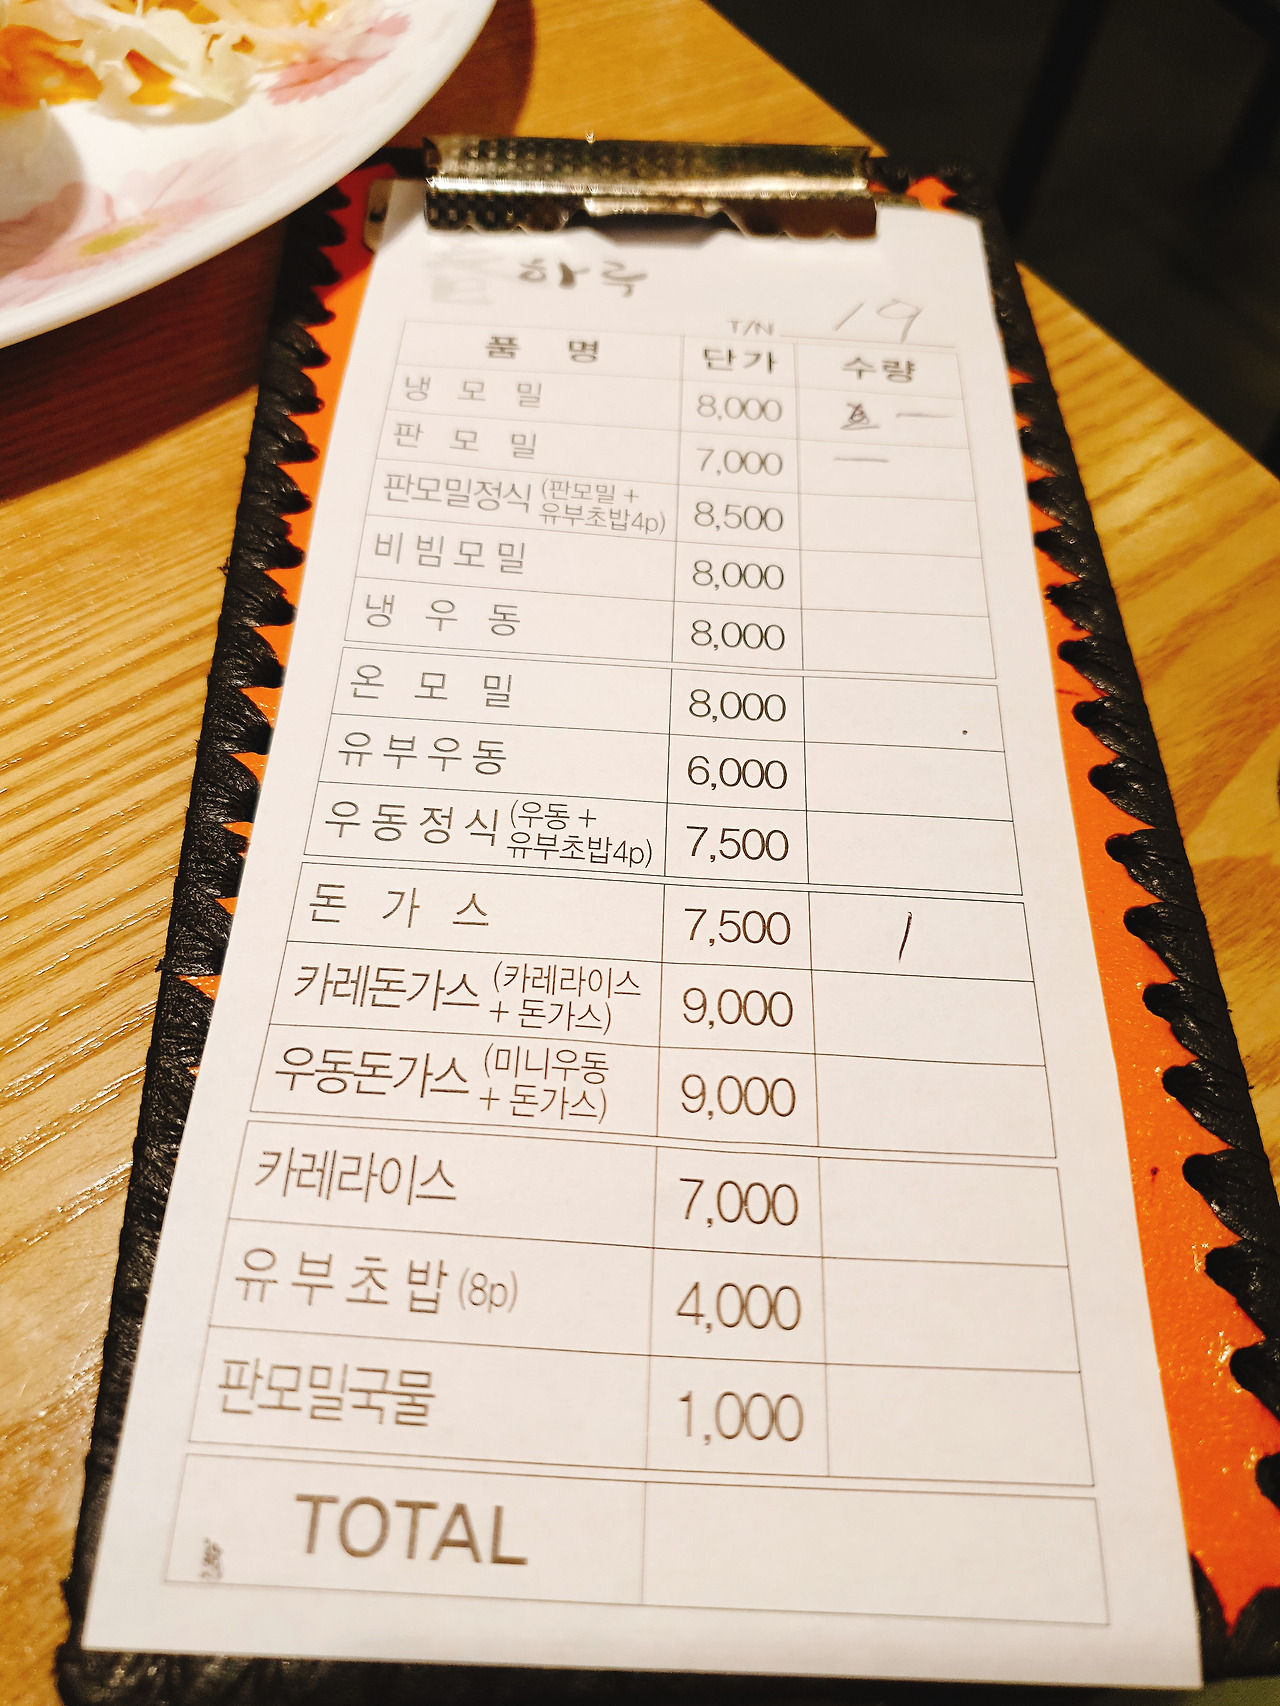 하루
T/N 19
품 명 단가 수량
냉 모 밀 8,000 —
판 모 밀 7,000 —
판모밀정식 (판모밀 + 유부초밥4p) 8,500
비빔모밀 8,000
냉 우 동 8,000
온 모 밀 8,000
유부우동 6,000
우동정식 (우동 + 유부초밥4p) 7,500
돈 가 스 7,500 /
카레돈가스 (카레라이스 + 돈가스) 9,000
우동돈가스 (미니우동 + 돈가스) 9,000
카레라이스 7,000
유부초밥 (8p) 4,000
판모밀국물 1,000
TOTAL